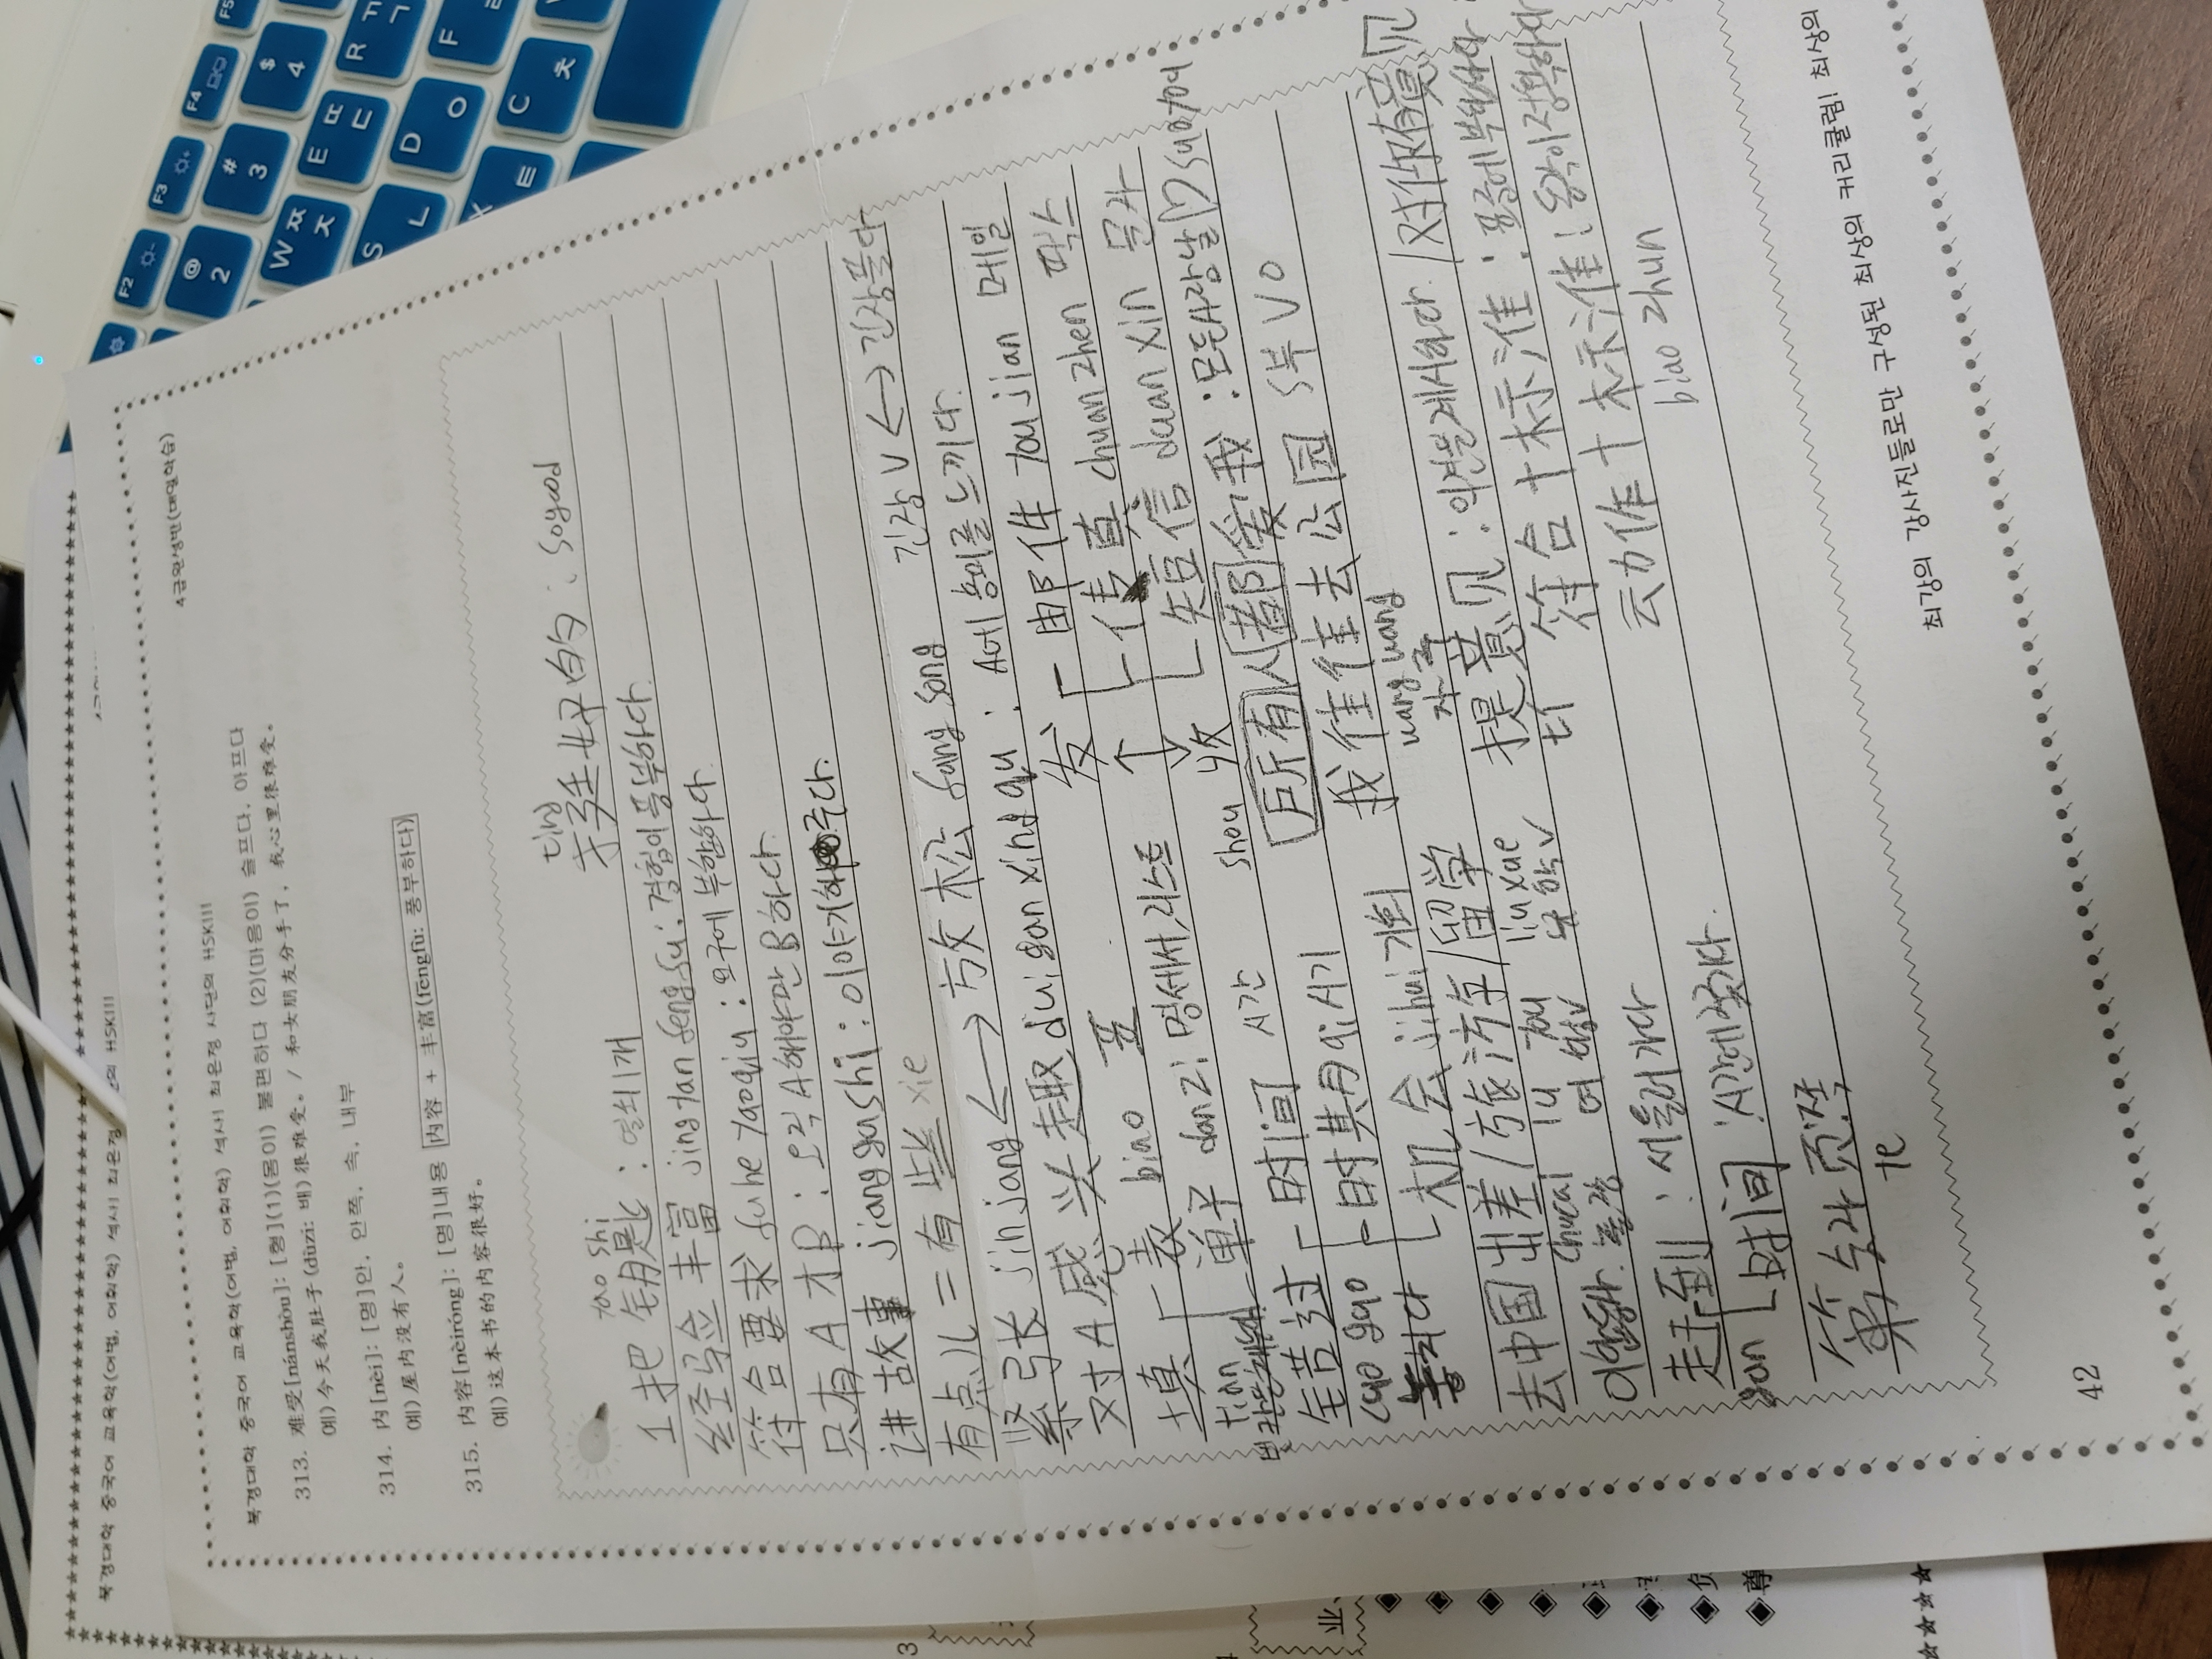 북경대학 중국어 교육학(어법, 어휘학) 석사 최은정 사단의 HSKIII
4급완생반(매일학습)
313. 难受[nánshòu]: [형](1)(몸이) 불편하다 (2)(마음이) 슬프다, 아프다
예) 今天我肚子(dùzi: 배) 很难受。 / 和女朋友分手了, 我心里很难受。
314. 内[nèi]: [명]안, 안쪽, 속, 내부
예) 屋内没有人。
315. 内容[nèiróng]: [명]내용 内容 + 丰富(fēngfù: 풍부하다)
예) 这本书的内容很好。
ting
挺好的 : so good
yao shi
1把 钥匙 : 열쇠1개
经验 丰富 jing yan feng fu : 경험이 풍부하다.
符合要求 fu he yaoqiu : 요구에 부합하다.
只有 A 才 B : 오직 A해야만 B하다.
讲故事 jiang gu shi : 이야기해주다.
有点儿 = 有些 xie
紧张 jin jang <-> 放松 fang song 긴장 V <-> 긴장풀다
对 A 感兴趣 dui gan xing qu : A에 흥미를 느끼다.
填 表 biao 표
单子 dan zi 명세서, 리스트
tian
发 邮件 you jian 메일
传真 chuan zhen 팩스
短信 duan xin 문자
收 shou
错过 时间 시간
cuo guo
时期 qi 시기
机会 jihui 기회
所有人都爱我 : 모든사람날(?) suo you
我往往去公园 S부 V O
wang wang
자주
去中国出差/旅游/留学
chucai 출장
lu you 여행V
liu xue 유학V
提意见 : 의견을제시하다. /对你有意见
符合 + 标准 : 표준에부합하다
动作 + 标准 : 동작이정확하다
biao zhun
赶 : 서둘러가다
gan
时间 시간에쫓기다.
第 숫자 页쪽
ye
42
최강의 강사진들로만 구성된 최상의 커리큘럼! 최상의
F2
F3
F4
F5
@ 2
# 3
$ 4
W ㅉ ㅈ
E ㄸ ㄷ
R ㄲ ㄱ
S ㄴ
D ㅇ
F
C ㅊ
3